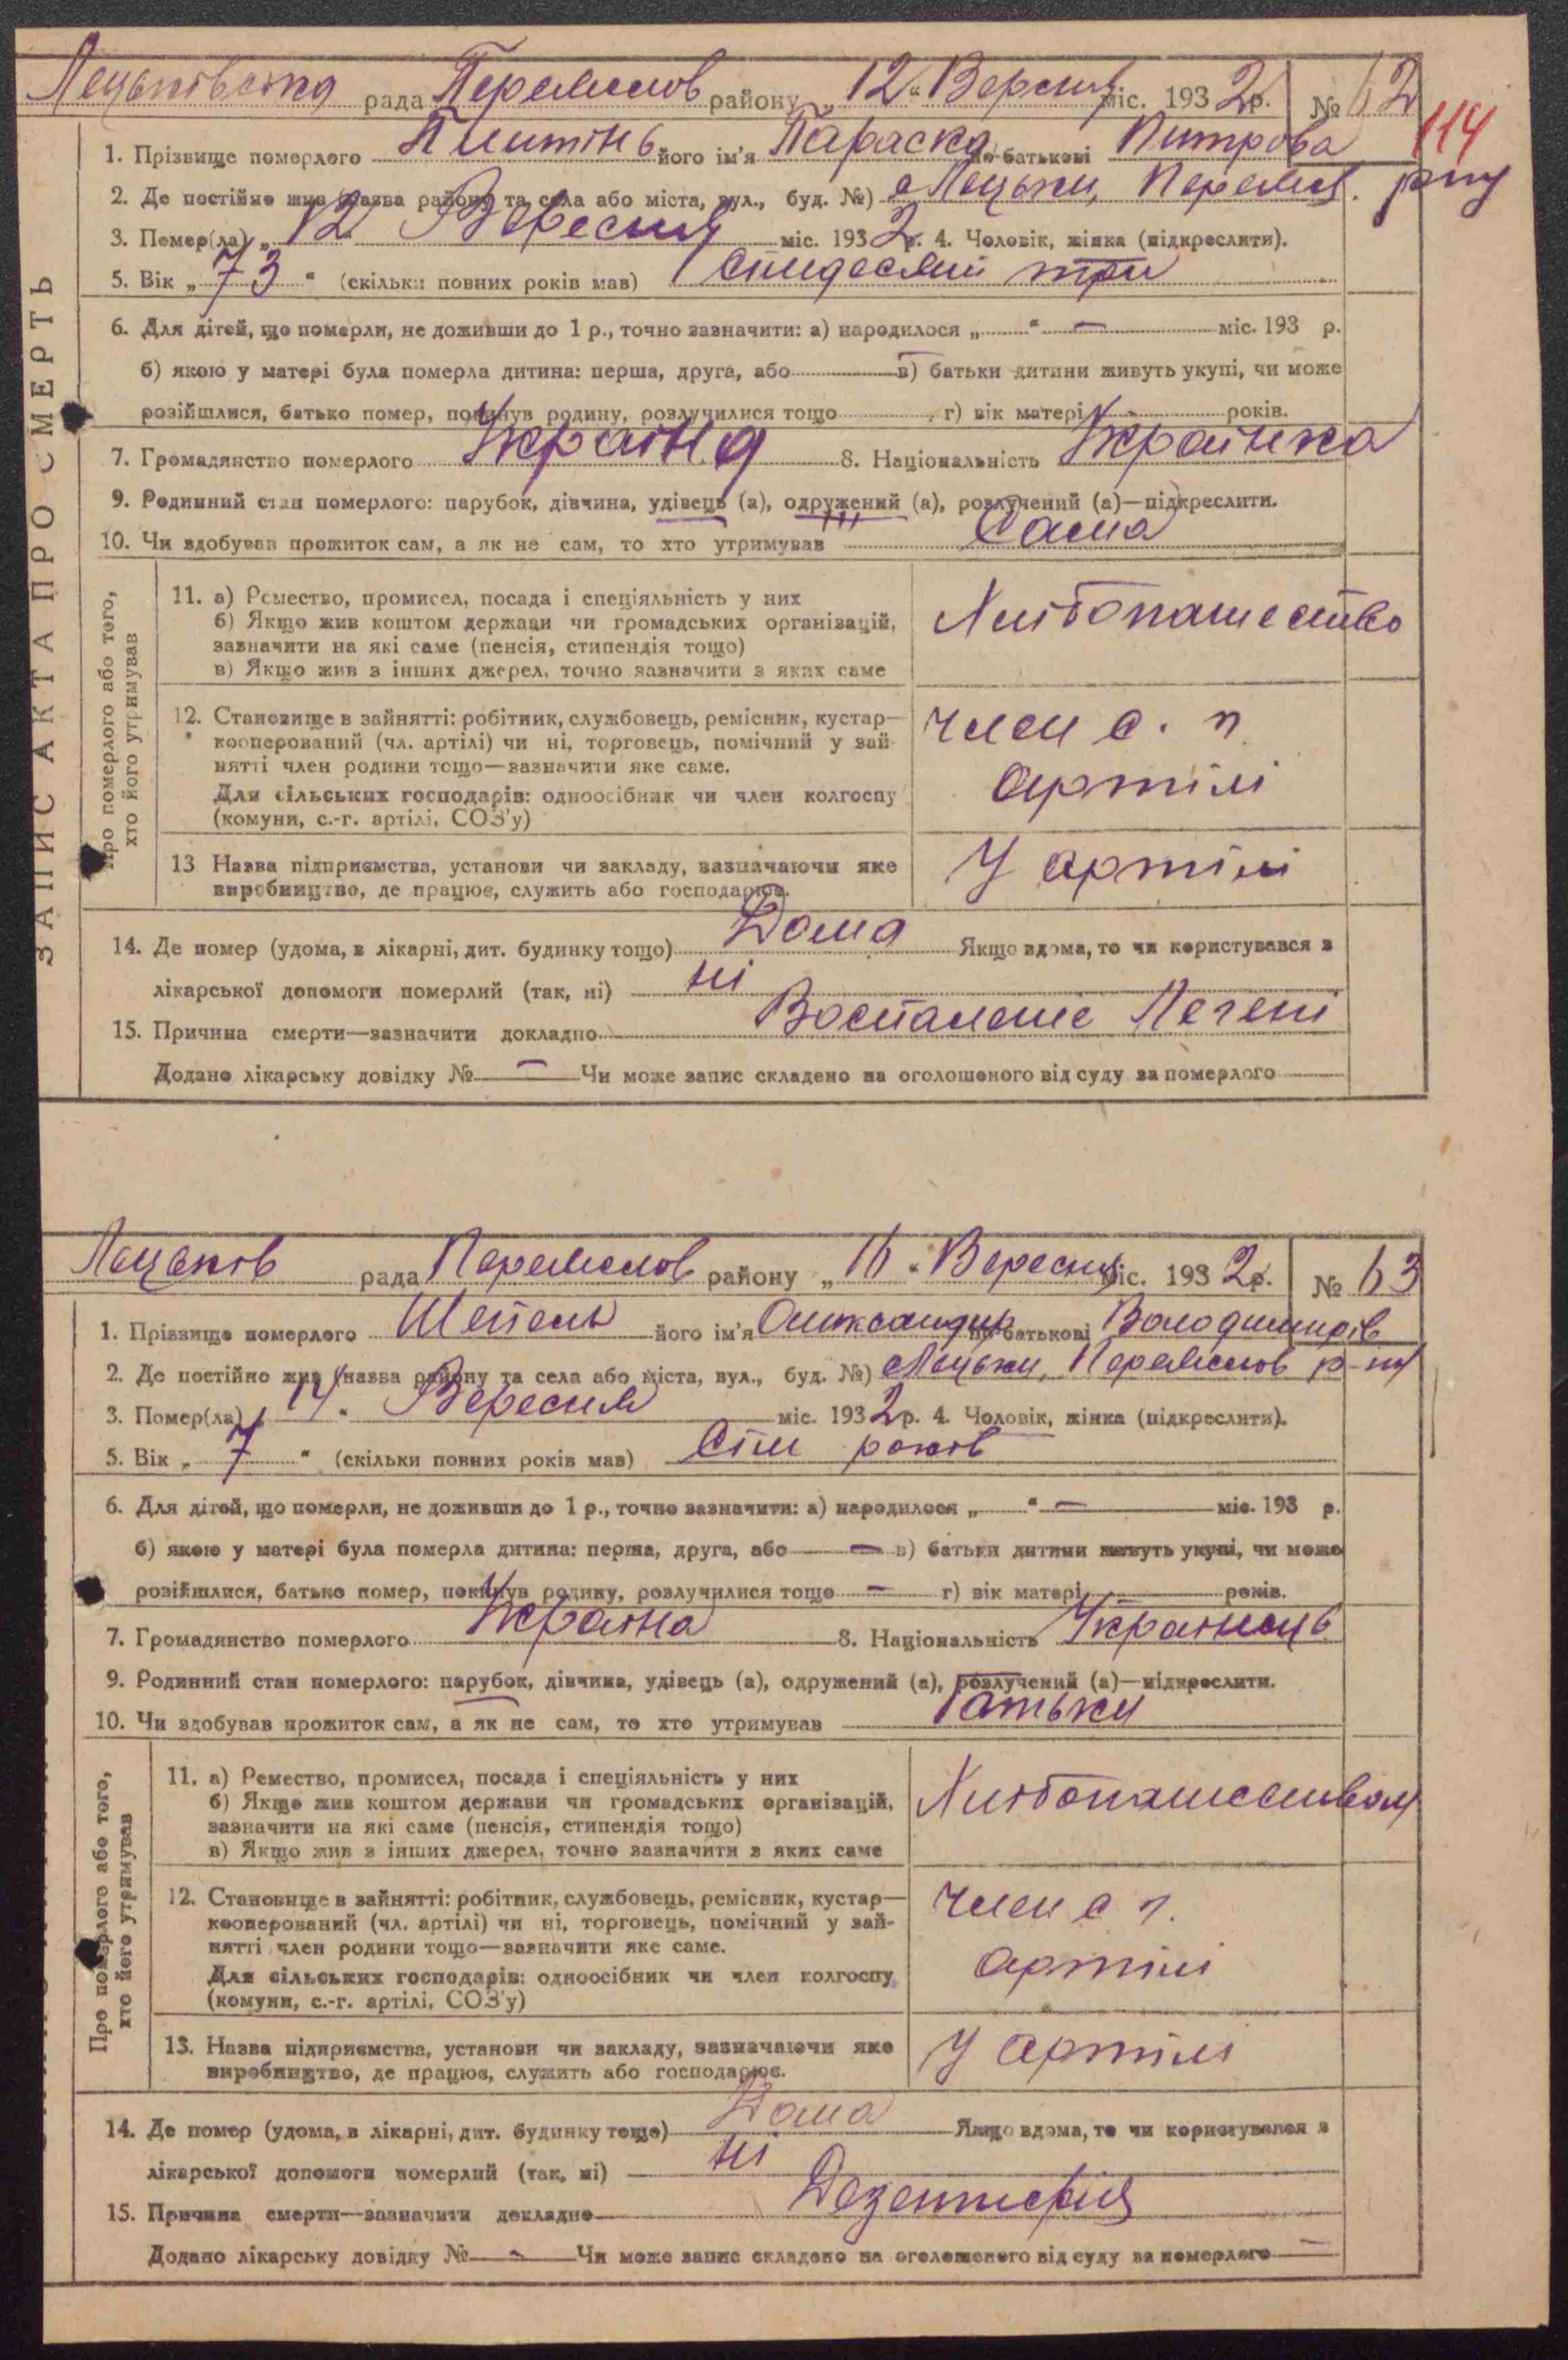 рада Перемислов району „12“ Вересня міс. 1932 р. № 62
114
1. Прізвище померлого його ім'я Параска по батькові Питрова
2. Де постійно жив (назва району та села або міста, вул., буд. №) с Лецьки, Перемисл. р-ну
3. Помер(ла) „12“ Вересня міс. 1932 р. 4. Чоловік, жінка (підкреслити).
5. Вік „73“ (скільки повних років мав) Сімдесят три
6. Для дітей, що померли, не доживши до 1 р., точно зазначити: а) народилося „ “ — міс. 193 р.
б) якою у матері була померла дитина: перша, друга, або в) батьки дитини живуть укупі, чи може
розійшлися, батько помер, покинув родину, розлучилися тощо г) вік матері років.
7. Громадянство померлого Украіна 8. Національність Украінка
9. Родинний стан померлого: парубок, дівчина, удівець (а), одружений (а), розлучений (а)—підкреслити.
10. Чи здобував прожиток сам, а як не сам, то хто утримував Сама
ЗАПИС АКТА ПРО СМЕРТЬ
Про померлого або того,
хто його утримував
11. а) Ремество, промисел, посада і спеціяльність у них
б) Якщо жив коштом держави чи громадських організацій,
зазначити на які саме (пенсія, стипендія тощо)
в) Якщо жив з інших джерел, точно зазначити з яких саме
Хлібопашество
12. Становище в зайнятті: робітник, службовець, ремісник, кустар—
кооперований (чл. артілі) чи ні, торговець, помічний у зай-
нятті член родини тощо—зазначити яке саме.
Для сільських господарів: одноосібник чи член колгоспу
(комуни, с.-г. артілі, СОЗ'у)
член с. г.
артілі
13 Назва підприємства, установи чи закладу, зазначаючи яке
виробництво, де працює, служить або господарює.
У артілі
14. Де помер (удома, в лікарні, дит. будинку тощо) Дома Якщо вдома, то чи користувався з
лікарської допомоги померлий (так, ні) ні
15. Причина смерти—зазначити докладно Воспаление Печені
Додано лікарську довідку № — Чи може запис складено на оголошеного від суду за померлого
рада Перемислов району „16“ Вересня міс. 1932 р. № 63
1. Прізвище померлого Шепель його ім'я Олександр по батькові Володимирів
2. Де постійно жив (назва району та села або міста, вул., буд. №) с Лецьки, Перемислов р-ну
3. Помер(ла) „14“ Вересня міс. 1932 р. 4. Чоловік, жінка (підкреслити).
5. Вік „7“ (скільки повних років мав) Сім років
6. Для дітей, що померли, не доживши до 1 р., точно зазначити: а) народилося „ “ — міс. 193 р.
б) якою у матері була померла дитина: перша, друга, або — в) батьки дитини живуть укупі, чи може
розійшлися, батько помер, покинув родину, розлучилися тощо — г) вік матері років.
7. Громадянство померлого Украіна 8. Національність Украінець
9. Родинний стан померлого: парубок, дівчина, удівець (а), одружений (а), розлучений (а)—підкреслити.
10. Чи здобував прожиток сам, а як не сам, то хто утримував Батьки
Про померлого або того,
хто його утримував
11. а) Ремество, промисел, посада і спеціяльність у них
б) Якще жив коштом держави чи громадських організацій,
зазначити на які саме (пенсія, стипендія тощо)
в) Якщо жив з інших джерел, точно зазначити з яких саме
Хлібопашеством
12. Становище в зайнятті: робітник, службовець, ремісник, кустар—
кооперований (чл. артілі) чи ні, торговець, помічний у зай-
нятті член родини тощо—зазначити яке саме.
Для сільських господарів: одноосібник чи член колгоспу,
(комуни, с.-г. артілі, СОЗ'у)
член с г.
артілі
13. Назва підприємства, установи чи закладу, зазначаючи яке
виробництво, де працює, служить або господарює.
У артілі
14. Де помер (удома, в лікарні, дит. будинку тощо) Дома Якщо вдома, то чи користувався з
лікарської допомоги померлий (так, ні) ні
15. Причина смерти—зазначити докладно Дезентирія
Додано лікарську довідку № - Чи може запис складено на оголошеного від суду за померлого —